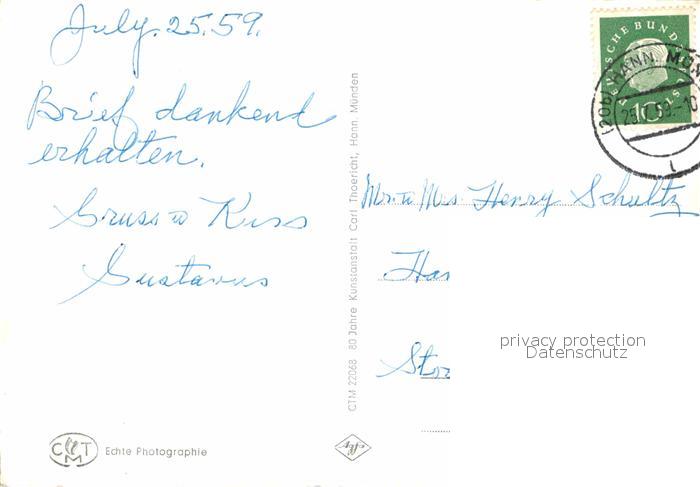 July. 25. 59.
Brief dankend
erhalten.
Gruss u Kuss
Gustavus
CTM
Echte Photographie
CTM 22068 80 Jahre Kunstanstalt Carl Thoericht, Hann. Münden
Agfa
DEUTSCHE BUNDESPOST
10
(20b) HANN. MÜN
25.7.59.-10
Mr. u Mrs. Henry Schultz
Han
privacy protection
Datenschutz